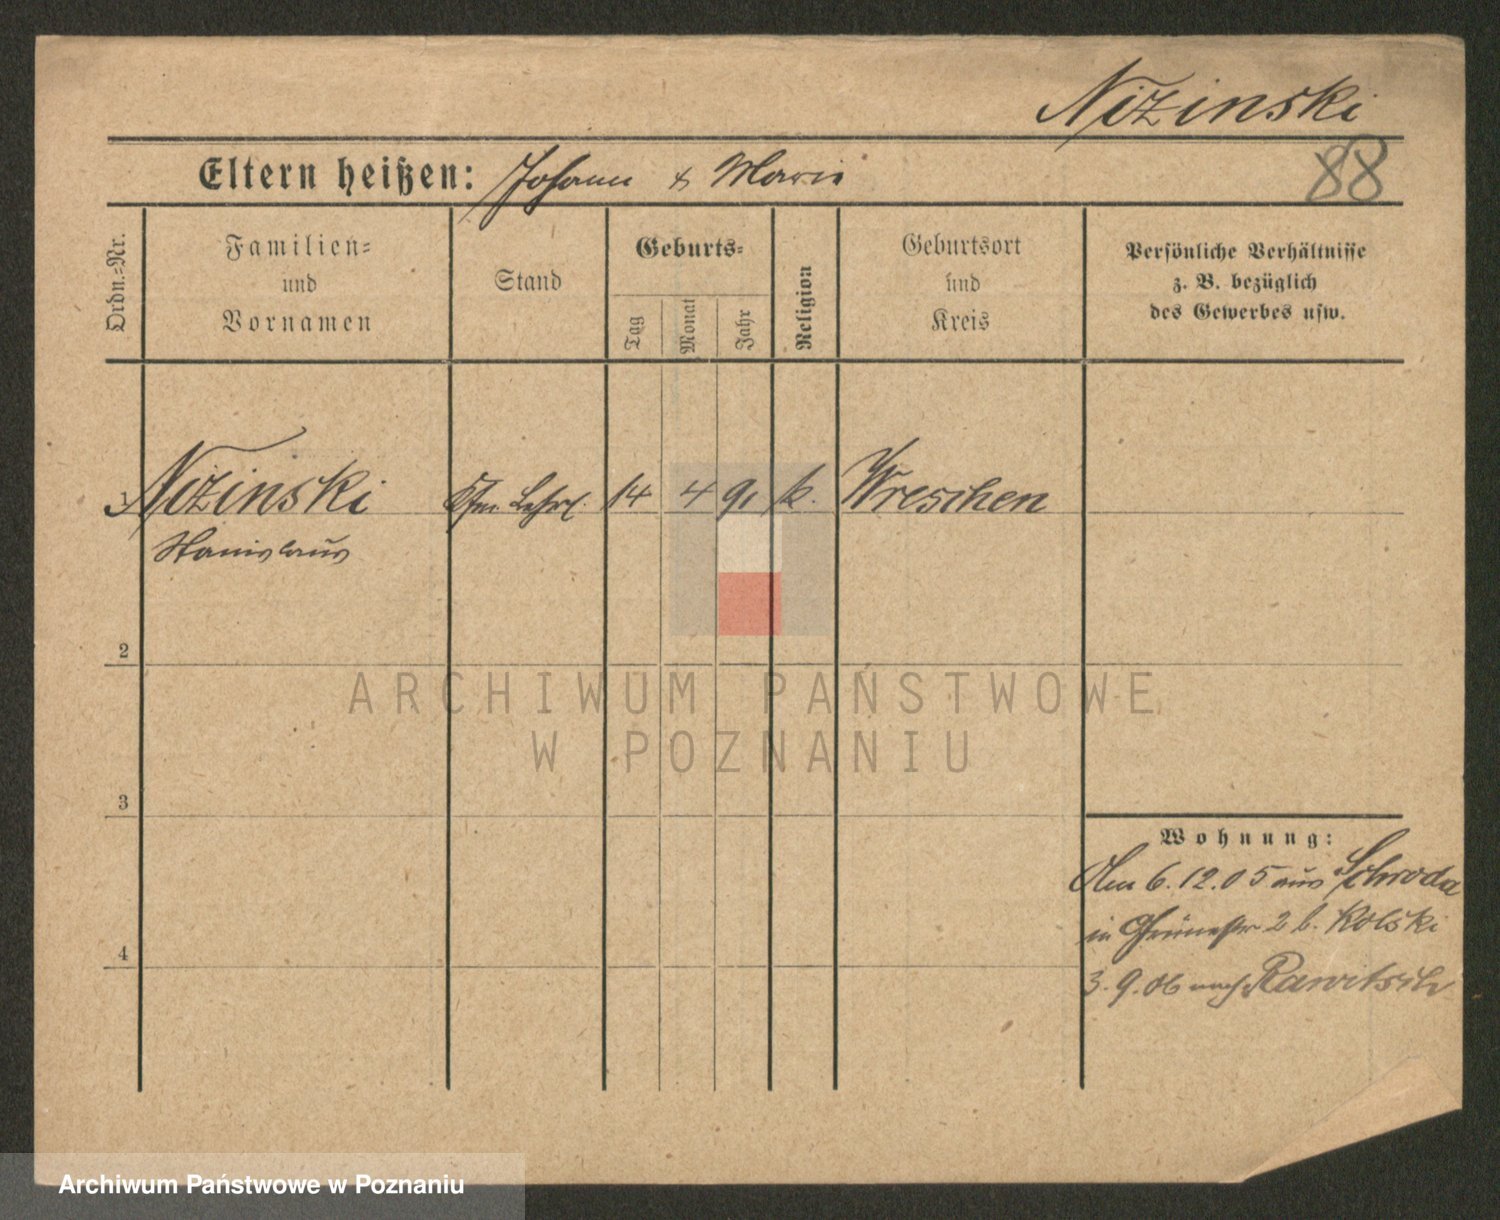 Nižinski
88
Eltern heißen: Johann & Marie
Ordn.=Nr.
Familien=
und
Vornamen
Stand
Geburts=
Tag
Monat
Jahr
Religion
Geburtsort
und
Kreis
Persönliche Verhältnisse
z. B. bezüglich
des Gewerbes usw.
1 Nižinski Kfm. Lehrl. 14 4 91 k. Wreschen
Stanislaus
2
ARCHIWUM PAŃSTWOWE
W POZNANIU
3
Wohnung:
Am 6.12.05 aus Schroda
in Grünestr 2 b. Kolski
4
3.9.06 nach Rawitsch
Archiwum Państwowe w Poznaniu